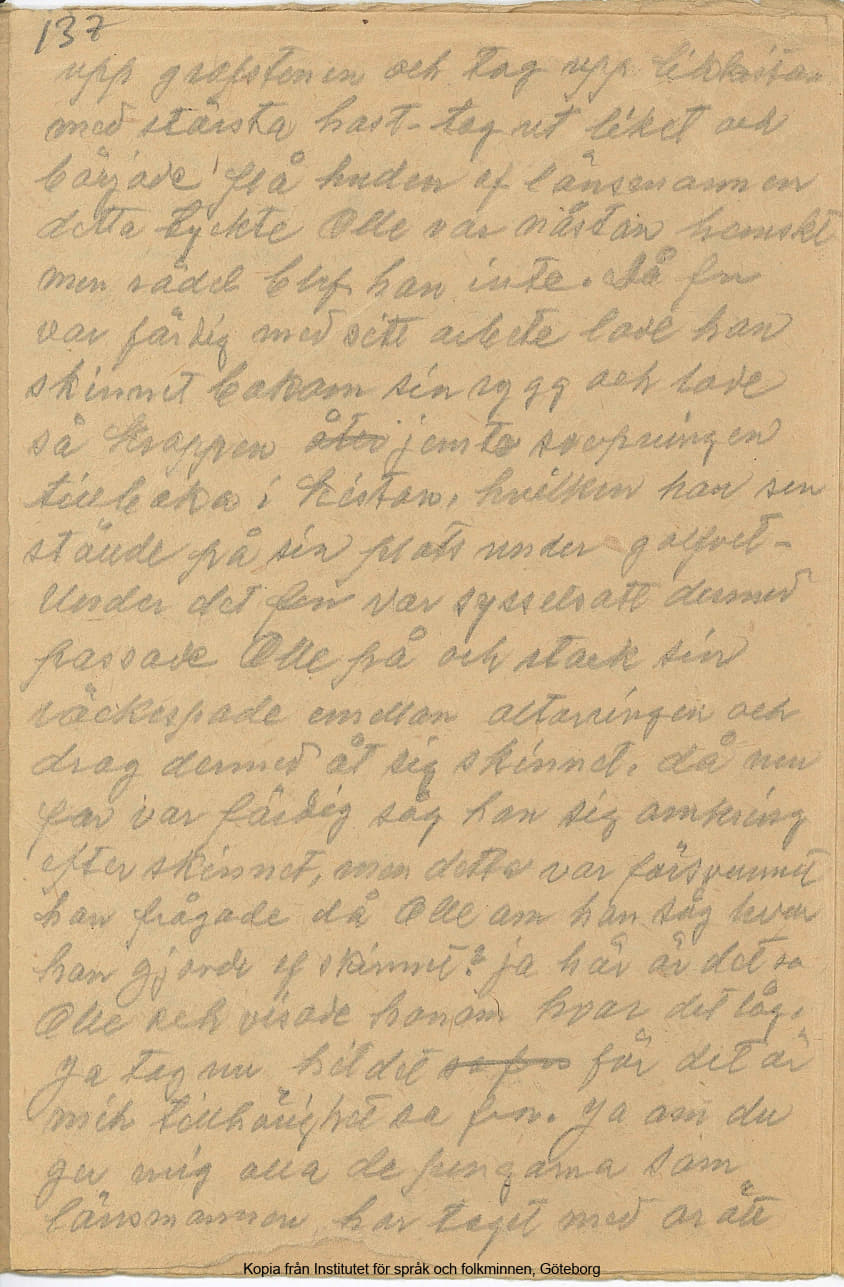 137
upp grafstenen och tog upp likkistan
med största hast - tog ut liket och
började flå huden af länsmannen
detta tyckte Olle var nästan hemskt
men rädd blef han inte. Då fn
var färdig med sitt arbete lade han
skinnet bakom sin rygg och lade
så kroppen åter jemte svepningen
tillbaka i kistan, hvilken han sen
stälde på sin plats under golfvet -
Under det fen var sysselsatt dermed
passade Olle på och stack sin
räckespade emellan altarringen och
drog dermed åt sig skinnet. då nu
fan var färdig såg han sig omkring
efter skinnet, men detta var försvunnit
han frågade då Olle om han såg hvar
han gjorde af skinnet? ja här är det sa
Olle och visade honom hvar det låg.
Ja tag nu hit det sa fan för det är
mih tillhörighet sa fan. Ja om du
ger mig alla de pengarna som
länsmannen har taget med orätt
Kopia från Institutet för språk och folkminnen, Göteborg